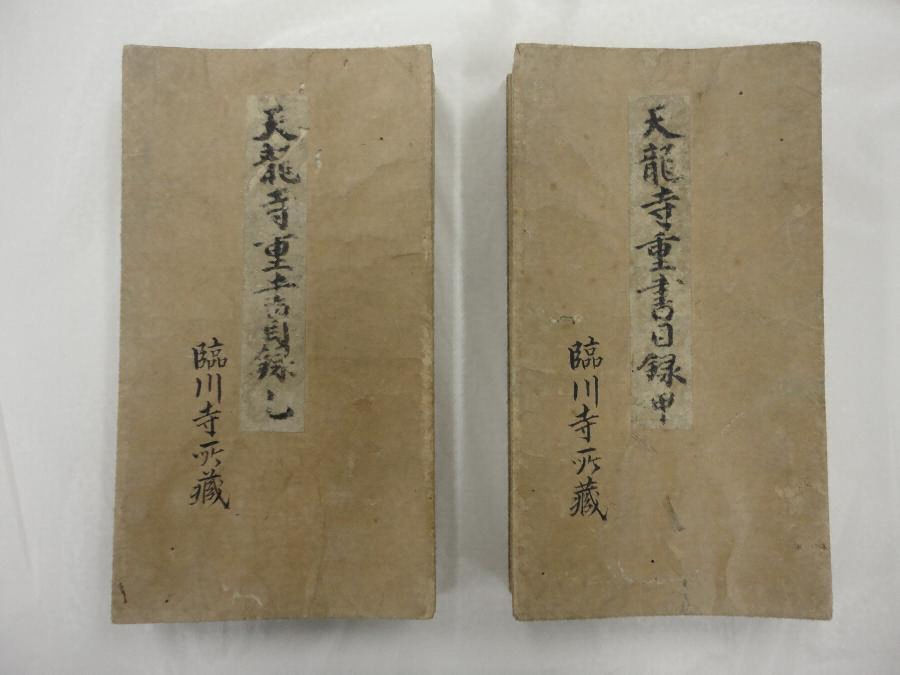 天龍寺重書目録甲
臨川寺所藏
天龍寺重書目録乙
臨川寺所藏